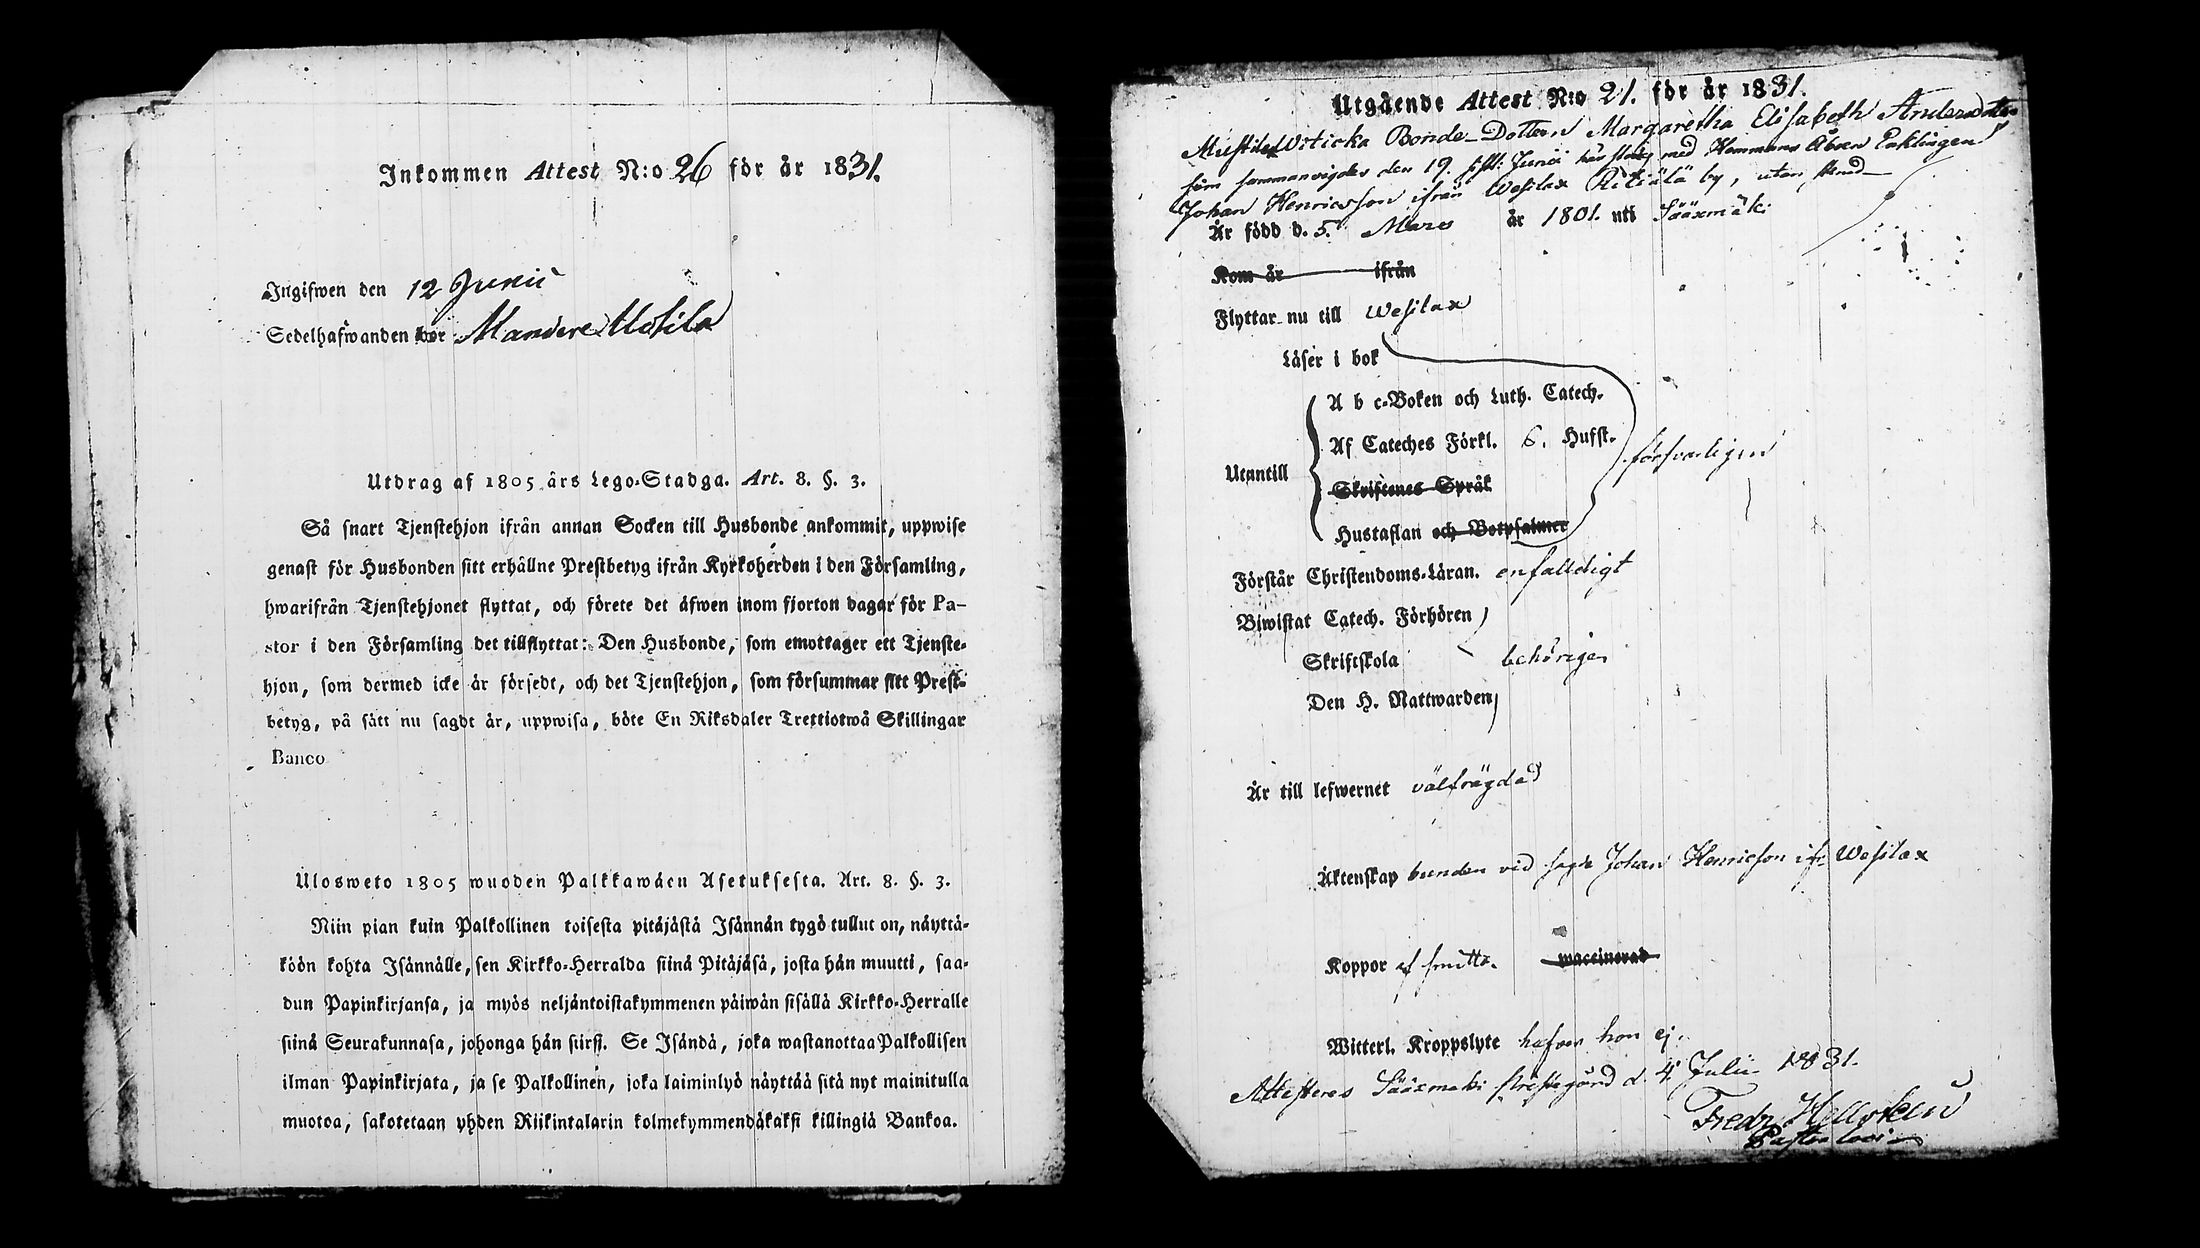 Inkommen Attest N:o 26 för år 1831.
Ingifwen den 12 Junii
Sedelhafwanden bor Mandere Uotila
Utdrag af 1805 års Lego-Stadga. Art. 8. §. 3.
Så snart Tjenstehjon ifrån annan Socken till Husbonde ankommit, uppwise
genast för Husbonden sitt erhållne Prestbetyg ifrån Kyrkoherden i den Församling,
hwarifrån Tjenstehjonet flyttat, och förete det äfwen inom fjorton dagar för Pa-
stor i den Församling det tillflyttat: Den Husbonde, som emottager ett Tjenste-
hjon, som dermed icke är försedt, och det Tjenstehjon, som försummar sitt Prest-
betyg, på sätt nu sagdt är, uppwisa, böte En Riksdaler Trettiotwå Skillingar
Banco
Ulosweto 1805 wuoden Palkkawäen Asetuksesta. Art. 8. §. 3.
Niin pian kuin Palkollinen toisesta pitäjästä Isännän tygö tullut on, näyttä-
köön kohta Isännälle, sen Kirkko-Herralda siinä Pitäjäsä, josta hän muutti, saa-
dun Papinkirjansa, ja myös neljäntoistakymmenen päiwän sisällä Kirkko-Herralle
siinä Seurakunnasa, johonga hän siirsi. Se Isändä, joka wastanottaa Palkollisen
ilman Papinkirjata, ja se Palkollinen, joka laiminlyö näyttää sitä nyt mainitulla
muotoa, sakotetaan yhden Riikintalarin kolmekymmendäkaksi killingiä Bankoa.
Utgående Attest N:o 21. för år 1831.
Bonde-Dottern Margaretha Elisabeth Andersdotter
som sammanvigdes den 19. Junii med Hemmans Åboen
Johan Henricsson ifrån Wesilax by, utan
Är född d. 5. Mars år 1801. uti Sääxmäki
Kom år ifrån
Flyttar nu till Wesilax
Läser i bok
A b c-Boken och Luth. Catech.
Af Cateches Förkl. 6. Hufst.
försvarligen
Utantill
Skriftenes Språk
Hustaflan och Botpsalmer
Förstår Christendoms-Läran. enfalldigt
Biwistat Catech. Förhören
Skriftskola behörigen
Den H. Nattwarden
Är till lefwernet välfrägdad
Äktenskap bunden vid sagde Johan Henricson ifr. Wesilax
Koppor af smitta. waccinerad
Witterl. Kroppslyte hafver hon ej.
Attesteras Sääxmäki Prestegård d. 4 Julii 1831.
Fredr. Hellsten
Pastor loci